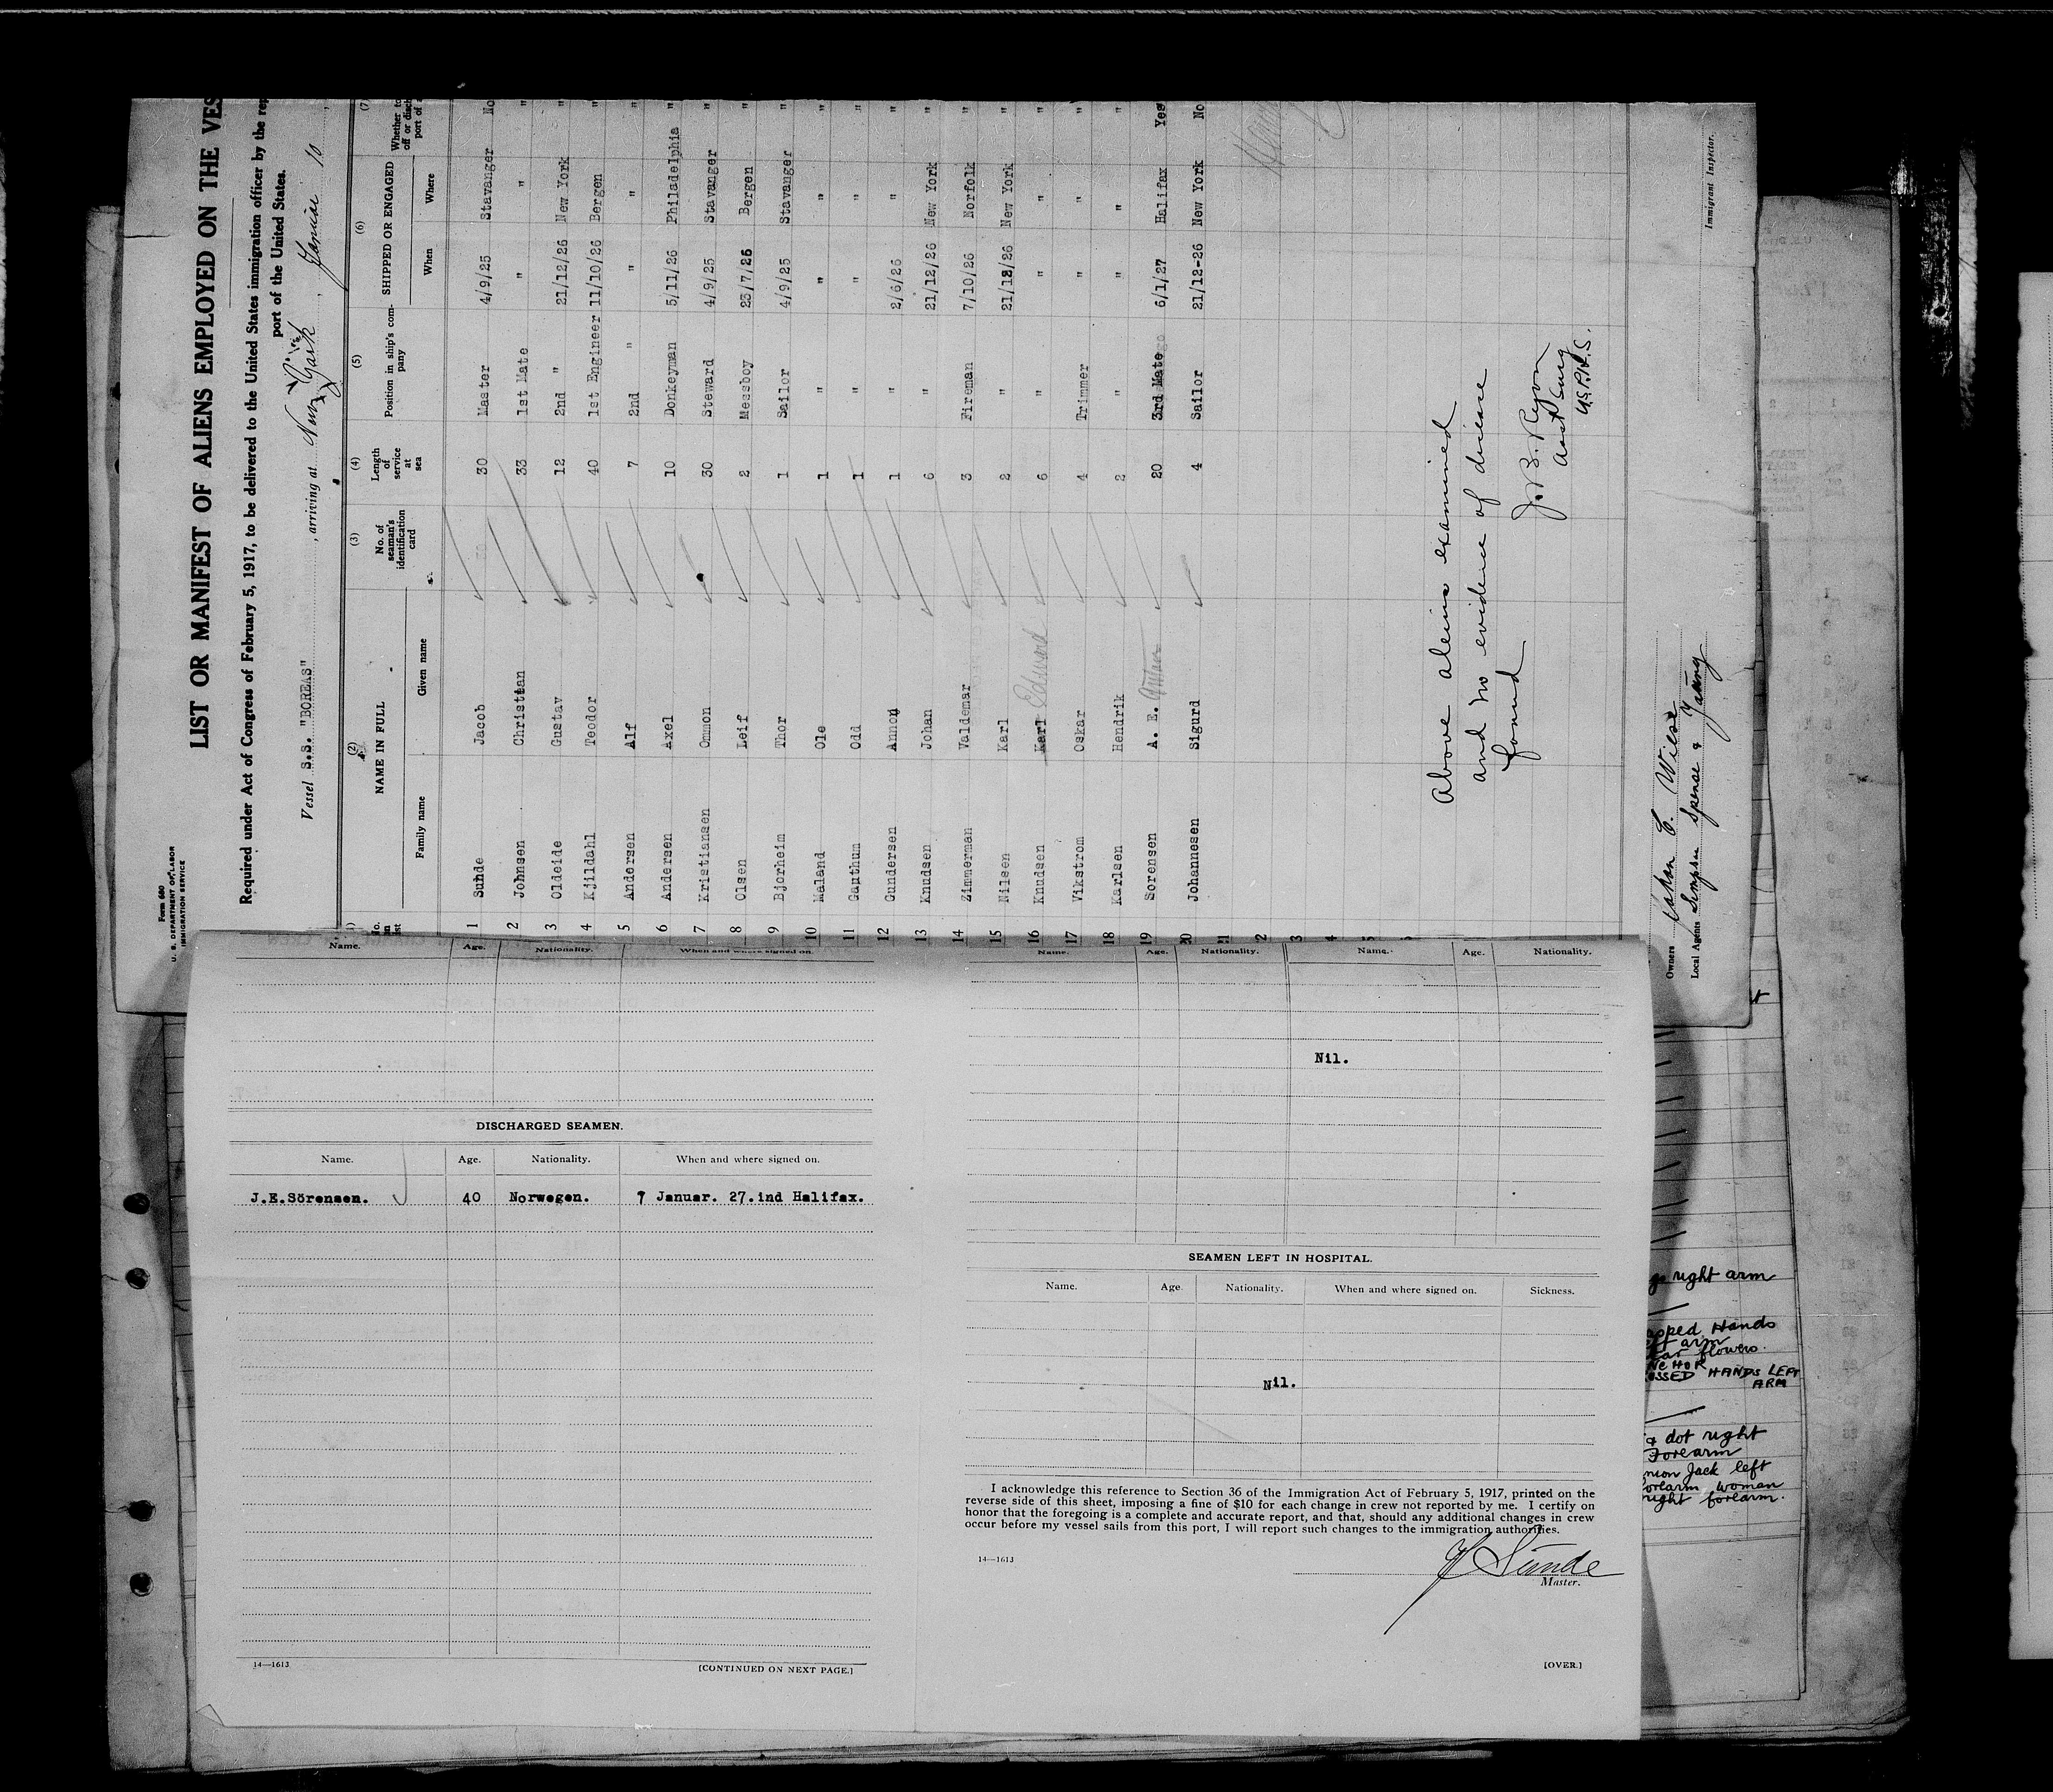 Form 680
U. S. DEPARTMENT OF LABOR
IMMIGRATION SERVICE
LIST OR MANIFEST OF ALIENS EMPLOYED ON THE VES
Required under Act of Congress of February 5, 1917, to be delivered to the United States immigration officer by the rep
port of the United States.
Vessel S.S. "BOREAS" , arriving at New York , Januar 10 ,
(2) (3) (4) (5) (6) (7)
NAME IN FULL No. of seaman's identification card Length of service at sea Position in ship's company SHIPPED OR ENGAGED Whether to
off or disch
port of a
Family name Given name When Where
1 Sunde Jacob 30 Master 4/9/25 Stavanger No
2 Johnsen Christian 33 1st Mate " " "
3 Oldeide Gustav 12 2nd " 21/12/26 New York "
4 Kjildahl Teodor 40 1st Engineer 11/10/26 Bergen "
5 Andersen Alf 7 2nd " " " "
6 Andersen Axel 10 Donkeyman 5/11/26 Philadelphia "
7 Kristiansen Ommon 30 Steward 4/9/25 Stavanger "
8 Olsen Leif 2 Messboy 23/7/26 Bergen "
9 Bjorheim Thor 1 Sailor 4/9/25 Stavanger "
10 Maland Ole 1 " " " "
11 Gauthum Odd 1 " " " "
12 Gundersen Annon 1 " 2/6/26 " "
13 Knudsen Johan 6 " 21/12/26 New York "
14 Zimmerman Valdemar 3 Fireman 7/10/26 Norfolk "
15 Nilsen Karl 2 " 21/12/26 New York "
16 Knudsen Karl Edward 6 " " " "
17 Vikstrom Oskar 4 Trimmer " " "
18 Karlsen Hendrik 2 " " " "
19 Sorensen A. E. 20 3rd Mate 6/1/27 Halifax Yes
20 Johannesen Sigurd 4 Sailor 21/12-26 New York No
Above aleins examined
and no evidence of disease
found
J. B. Ryon
Asst Surg
U.S.P.H.S.
Owners E. Wiese
Local Agents Simpson Spense & Young
Immigrant Inspector.
Name. Age. Nationality. When and where signed on.
DISCHARGED SEAMEN.
Name. Age. Nationality. When and where signed on.
J.E.Sörensen. 40 Norwegen. 7 Januar. 27.ind Halifax.
14—1613 [CONTINUED ON NEXT PAGE.]
Name. Age. Nationality. Name. Age. Nationality.
Nil.
SEAMEN LEFT IN HOSPITAL.
Name. Age. Nationality. When and where signed on. Sickness.
Nil.
I acknowledge this reference to Section 36 of the Immigration Act of February 5, 1917, printed on the
reverse side of this sheet, imposing a fine of $10 for each change in crew not reported by me. I certify on
honor that the foregoing is a complete and accurate report, and that, should any additional changes in crew
occur before my vessel sails from this port, I will report such changes to the immigration authorities.
J Sunde
14—1613 Master.
[OVER.]
right arm
Hands
arm
flowers.
HANDS LEFT
ARM
& dot right
Forearm
Jack left
forearm, woman
right forearm.